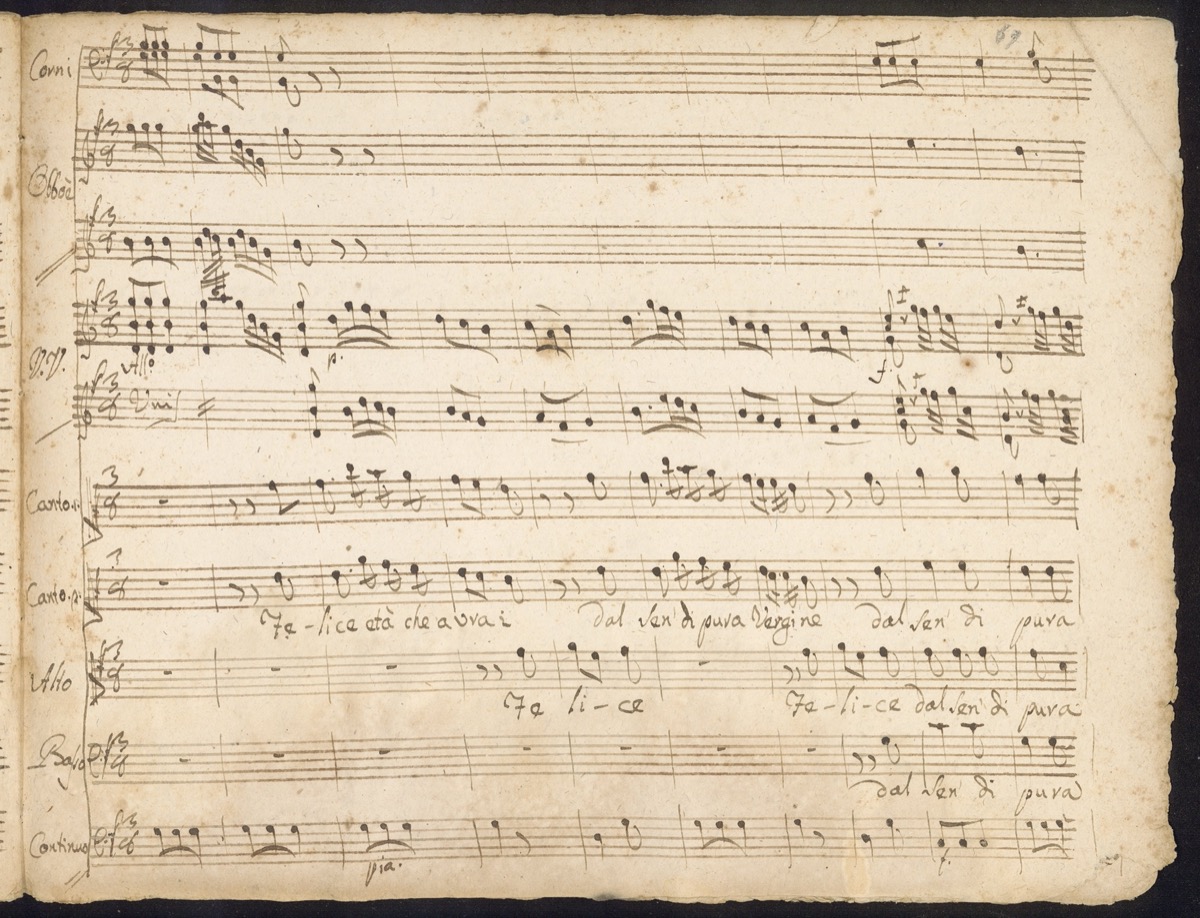 69
Corni
3
8
Obboi
3
8
3
8
V.V.
3
8
All.o
p.
f.
3
8
Uni
Canto. 1.
3
8
Canto. 2.
3
8
Fe-lice età che avrai dal sen di pura Vergine dal sen di pura
Alto
3
8
Fe li-ce Fe-li-ce dal sen di pura
Basso
3
8
dal sen di pura
Continuo
3
8
pia. f.